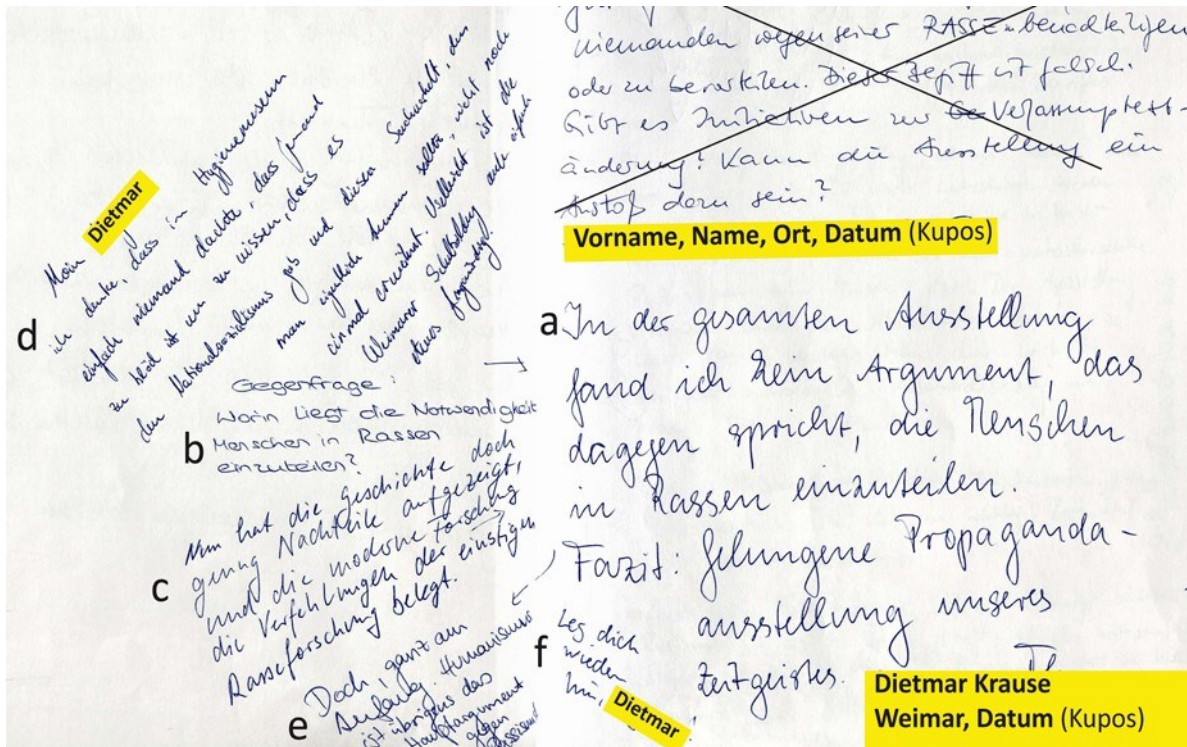 d
Moin Dietmar
ich denke, dass im Hygienemuseum
einfach niemand dachte dass jemand
zu blöd ist um zu wissen, dass es
den Nationalsozialismus gab und diesen Sachverhalt, den
man eigentlich kennen sollte, nicht noch
einmal erwähnt. Vielleicht ist die
Weimarer Schulbildung auch einfach
etwas fragwürdig.
b
Gegenfrage:
Worin liegt die Notwendigkeit
Menschen in Rassen
einzuteilen?
c
Nun hat die Geschichte doch
genug Nachteile aufgezeigt,
und die moderne Forschung
die Verfehlungen der einstigen
Rasseforschung belegt.
e
Doch, ganz am
Anfang. Humanismus
ist übrigens das
Hauptargument
gegen
Rassismus
niemanden wegen seiner RASSE zu benachteiligen
oder zu bevorteilen. Dieser Begriff ist falsch.
Gibt es Initiativen zur Verfassungstext-
änderung? Kann die Ausstellung ein
Anstoß dazu sein?
Vorname, Name, Ort, Datum (Kupos)
a
In der gesamten Ausstellung
fand ich kein Argument, das
dagegen spricht, die Menschen
in Rassen einzuteilen.
Fazit: Gelungene Propaganda-
ausstellung unseres
Zeitgeistes.
f
Leg dich
wieder
hin, Dietmar!
Dietmar Krause
Weimar, Datum (Kupos)